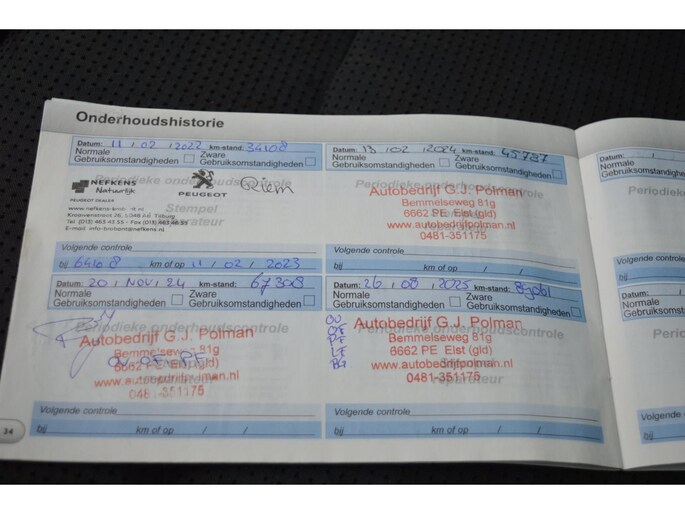 Onderhoudshistorie
Datum: 11 / 02 / 2022 km-stand: 34108
Normale Gebruiksomstandigheden Zware Gebruiksomstandigheden
NEFKENS
Natuurlijk
PEUGEOT
PEUGEOT DEALER
Kraaivenstraat 26, 5048 AB Tilburg
Periodieke onderhoudscontrole
Stempel
Volgende controle
bij 64108 km of op 11 / 02 / 2023
Datum: 13 / 02 / 2024 km-stand: 45787
Normale Gebruiksomstandigheden Zware Gebruiksomstandigheden
Periodieke onderhoudscontrole
Autobedrijf G.J. Polman
Bemmelseweg 81g
6662 PE Elst (gld)
www.autobedrijfpolman.nl
0481-351175
Volgende controle
bij km of op / /
Datum: 20 / NOV / 24 km-stand: 67308
Normale Gebruiksomstandigheden Zware Gebruiksomstandigheden
Periodieke onderhoudscontrole
Autobedrijf G.J. Polman
Bemmelseweg 81g
6662 PE Elst (gld)
www.autobedrijfpolman.nl
0481-351175
Volgende controle
bij km of op / /
Datum: 26 / 08 / 2025 km-stand:
Normale Gebruiksomstandigheden Zware Gebruiksomstandigheden
Periodieke onderhoudscontrole
Autobedrijf G.J. Polman
Bemmelseweg 81g
6662 PE Elst (gld)
www.autobedrijfpolman.nl
0481-351175
Volgende controle
bij km of op / /
34
Datum: /
Normale
Gebruiksom
Periodiek
Volgende contro
bij
Datum: /
Normale
Gebruiksoms
Periodiek
Volgende contro
bij